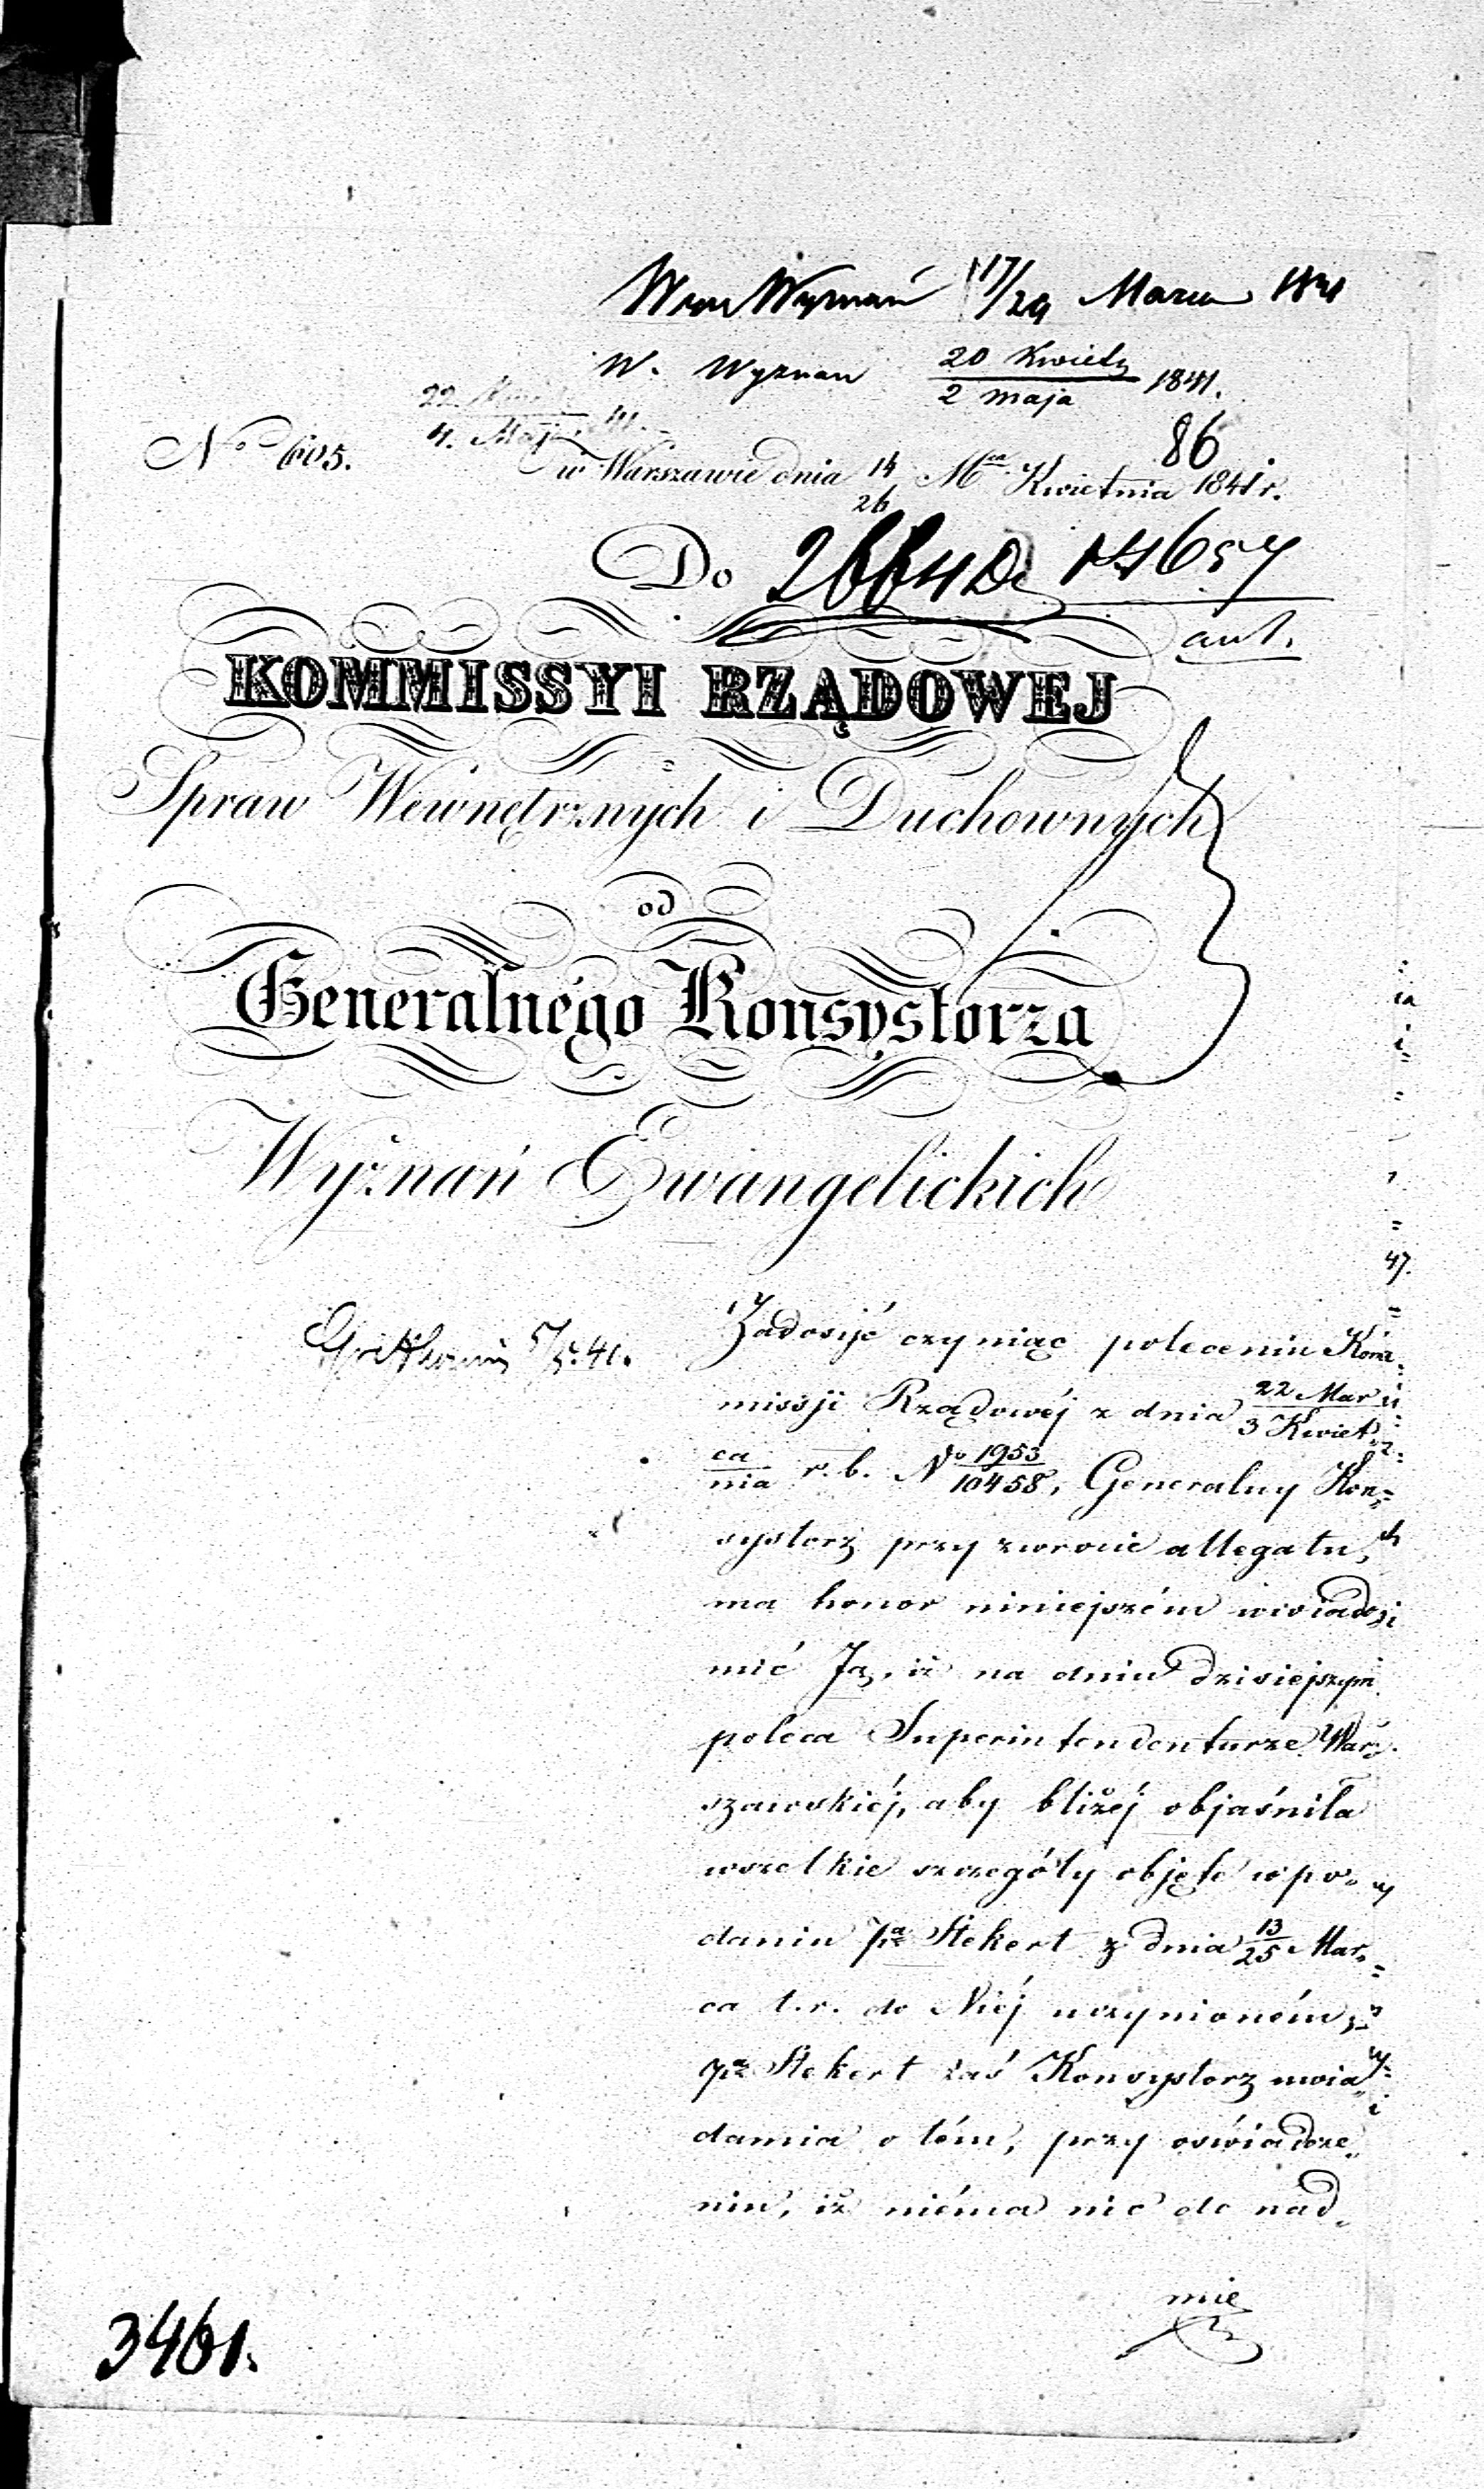 Wyznań 17/29 Marca 1841
W. Wyznan 20 Kwietn / 2 maja 1841.
22. / 4. Maja 41.
86
No 605.
w Warszawie dnia 14/26 Mca Kwietnia 1841 r.
Do 2664 14657
ant.
KOMMISSYI RZĄDOWEJ
Spraw Wewnętrznych i Duchownych
od
Generalnégo Konsystorza
Wyznań Ewangelickich
5/5.41.
Zadosyć czyniąc poleceniu Kom-
missji Rządowéj z dnia 22 Mar / 3 Kwiet
ca / nia r. b. No 1953/10458, Generalny Kon-
systorz przy zwrocie allegatu,
ma honor niniejszém uwiado-
mić Ją, iż na dniu dzisiejszym
poleca Superintendenturze War-
szawskiéj, aby bliżéj objaśniła
wszelkie szczegóły objęte w po-
daniu pa Stekert z dnia 13/25 Mar-
ca t. r. do Niéj uczynioném,
pa Stekert zaś Konsystorz uwia-
damia o tém, przy oświadcze-
niu, iż niéma nic do nad-
mie
3461.
47.